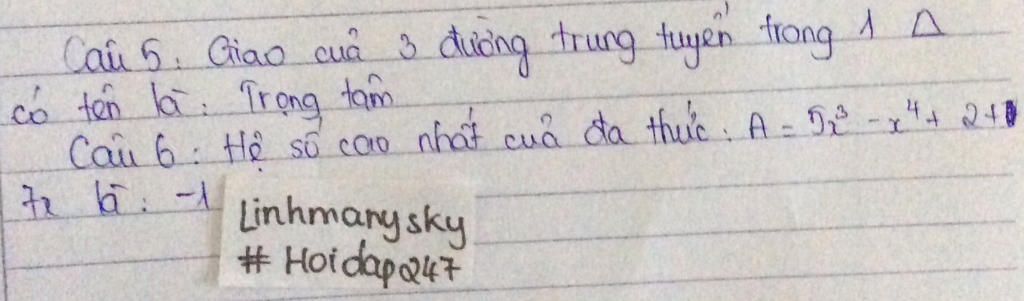 Câu 5: Giao của 3 đường trung tuyến trong 1 Δ
có tên là: Trọng tâm
Câu 6: Hệ số cao nhất của đa thức: A = 5x³ - x⁴ + 2 +
7x là: -1
Linhmanysky
# Hoidap247